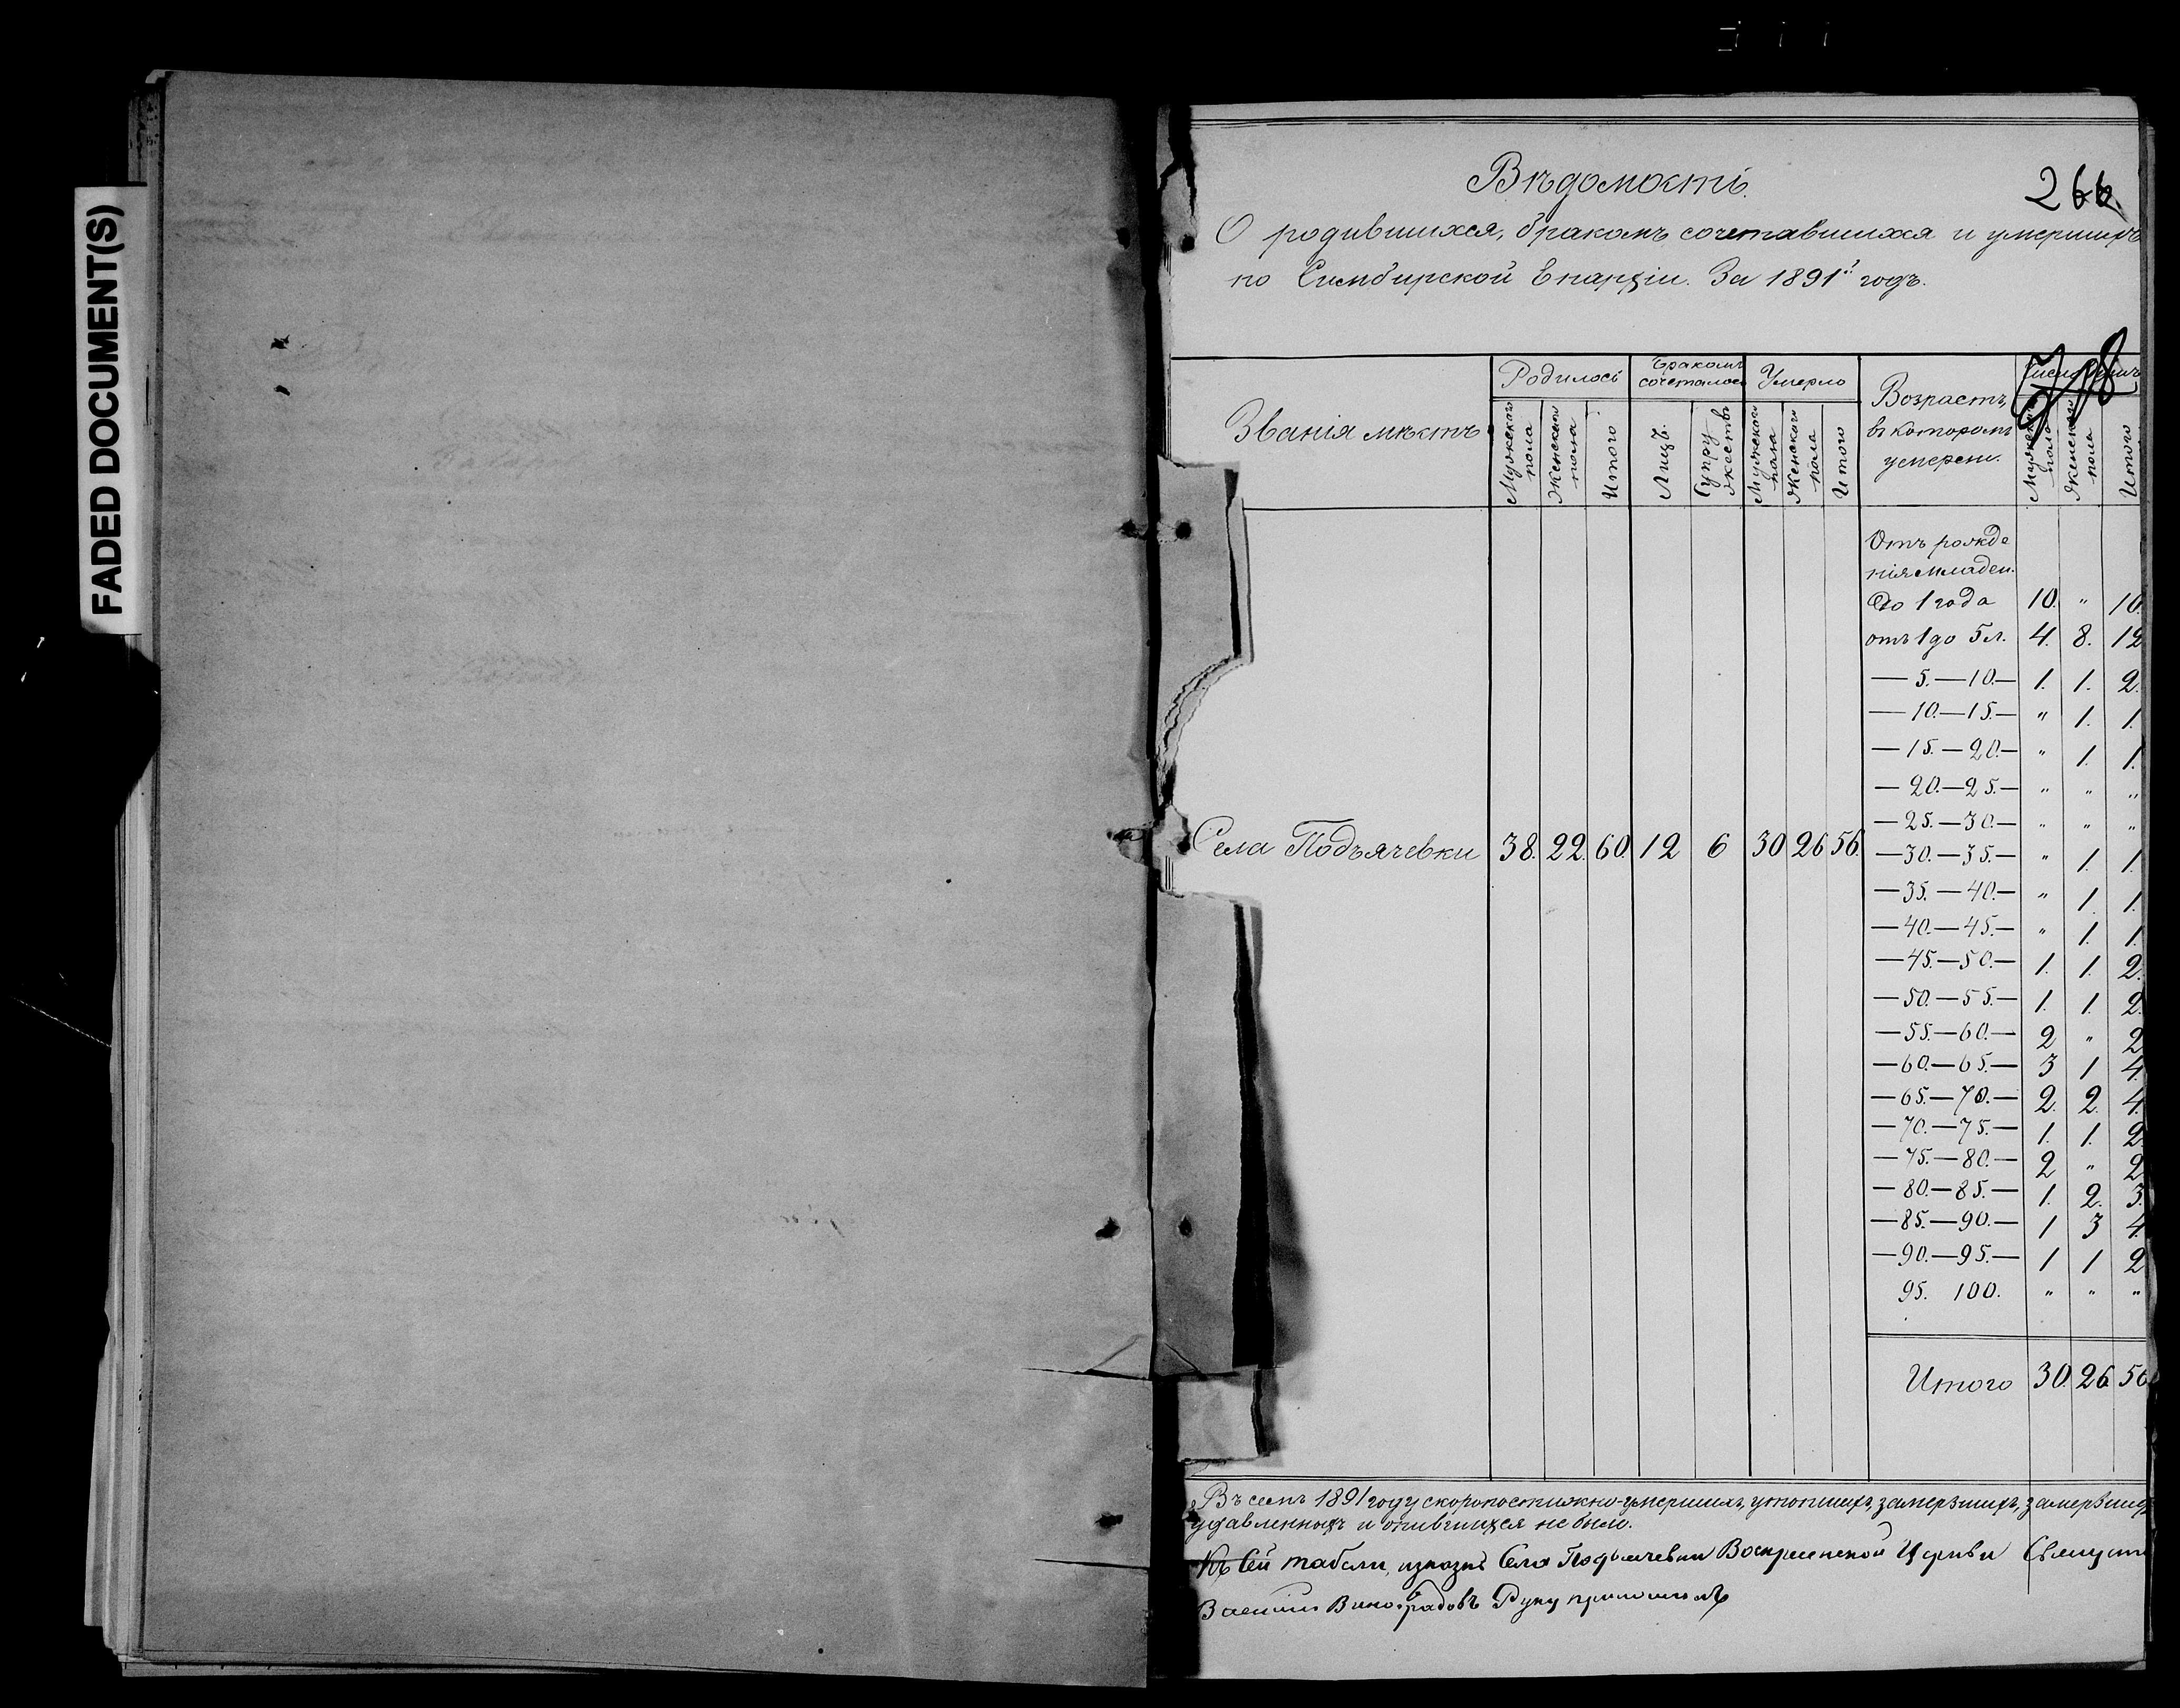 FADED DOCUMENT(S)
Вѣдомость.
О родившихся, бракомъ сочетавшихся и умершихъ
по Симбирской Епархіи. За 1891й годъ.
Званія мѣстъ
Родилось
Мужскаго пола
Женскаго пола
Итого
Бракомъ сочеталось
Лицъ.
Супружествъ
Умерло
Мужскаго пола
Женскаго пола
Итого
Возрастъ,
въ которомъ
умерли.
Мужскаго пола
Женскаго пола
Итого
Отъ рожде
нія младен.
До 1 года 10. " 10.
отъ 1 до 5 л. 4. 8. 12
— 5. — 10. — 1. 1. 2.
— 10. — 15. — " 1. 1.
— 15. — 20. — " 1. 1.
— 20. — 25. — " " "
— 25. — 30. — " " "
Села Подъячевки 38. 22. 60. 12 6 30 26 56.
— 30. — 35. — " 1. 1.
— 35. — 40. — " 1. 1.
— 40. — 45. — " 1. 1.
— 45. — 50. — 1. 1. 2.
— 50. — 55. — 1. 1. 2.
— 55. — 60. — 2 " 2
— 60. — 65. — 3 1 4.
— 65. — 70. — 2. 2. 4.
— 70. — 75. — 1. 1. 2.
— 75. — 80. — 2 " 2
— 80. — 85. — 1. 2. 3.
— 85. — 90. — 1 3 4.
— 90. — 95. — 1 1 2
95. 100. " " "
Итого 30. 26 56
Въ семъ 1891 году скоропостижно-умершихъ, утопшихъ, замерзшихъ, замерзших
удавленныхъ и опившихся не было.
Къ Сей табели, Села Подъячевки Воскресенской Церкви
Василій Виноградовъ Руку приложилъ